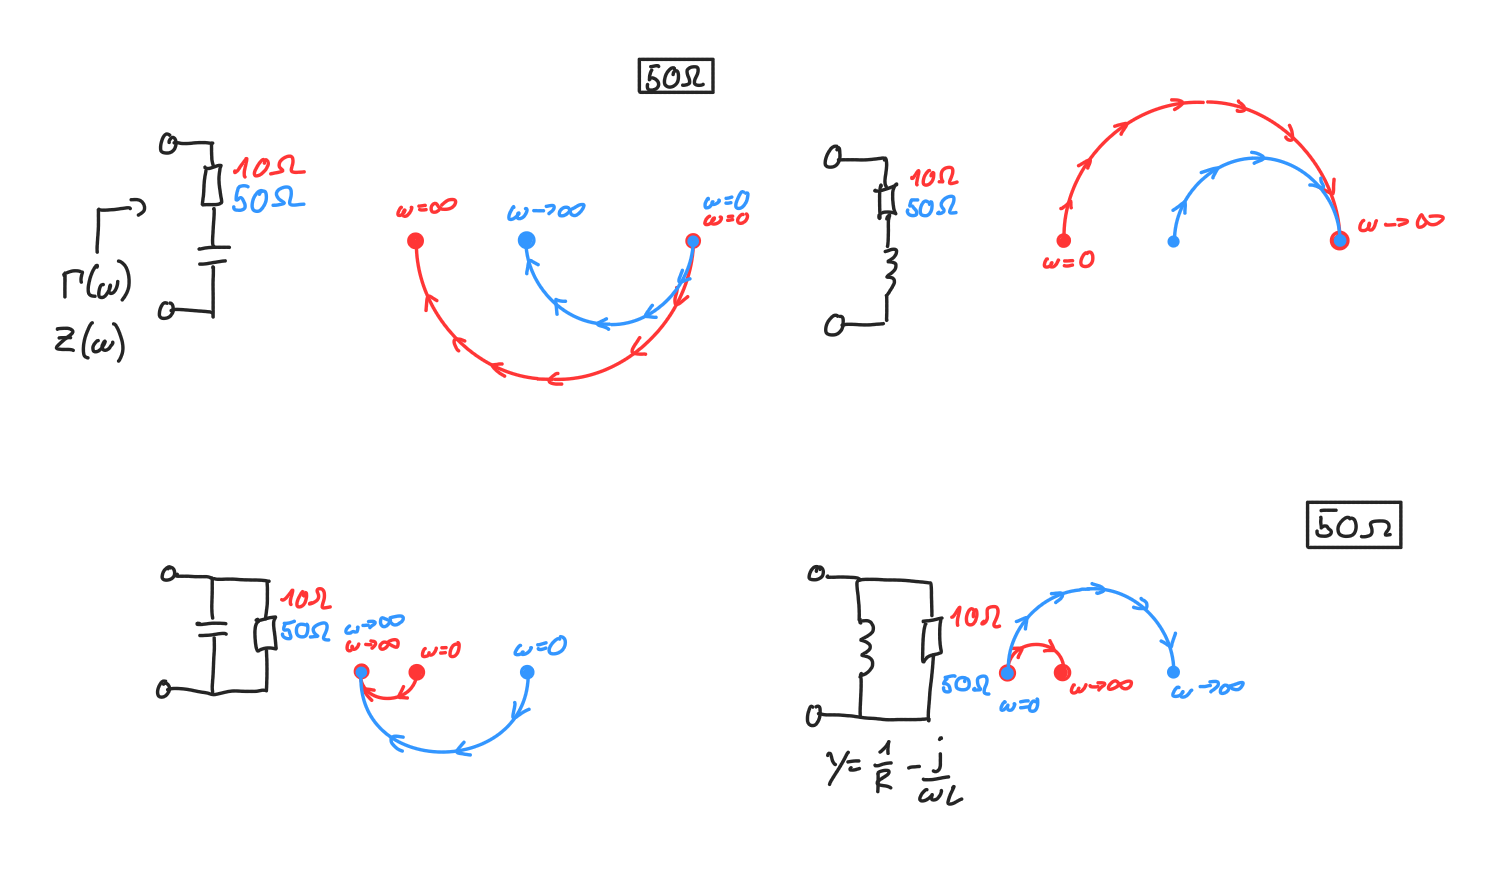 50Ω
10Ω
50Ω
Γ(ω)
Z(ω)
ω=∞
ω→∞
ω=0
ω=0
10Ω
50Ω
ω=0
ω→∞
10Ω
50Ω
ω→∞
ω→∞
ω=0
ω=0
50Ω
10Ω
50Ω
ω=0
ω→∞
ω→∞
Y=1/R-j/ωL